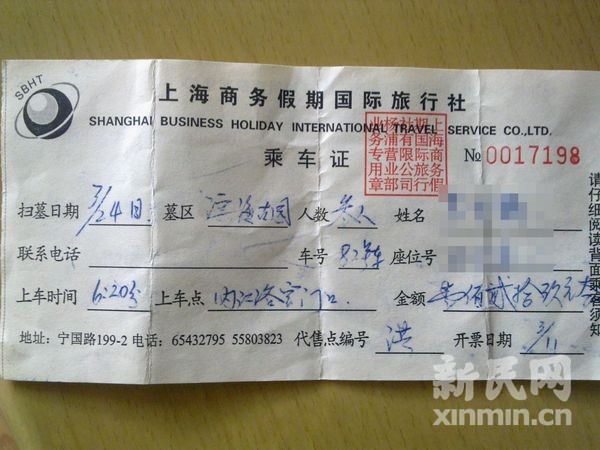 SBHT
上海商务假期国际旅行社
SHANGHAI BUSINESS HOLIDAY INTERNATIONAL TRAVEL SERVICE CO.,LTD.
乘车证
上海商务假期国际旅行社有限公司杨浦营业业务专用章
№ 0017198
扫墓日期 3/24日 墓区 滨海古园 人数 姓名
联系电话 车号 座位号
上车时间 6:20分 上车点 内江路官门口 金额 壹佰贰拾玖元
地址: 宁国路199-2 电话: 65432795 55803823 代售点编号 洪 开票日期 3/11
请仔细阅读背面乘客须知
新民网
xinmin.cn